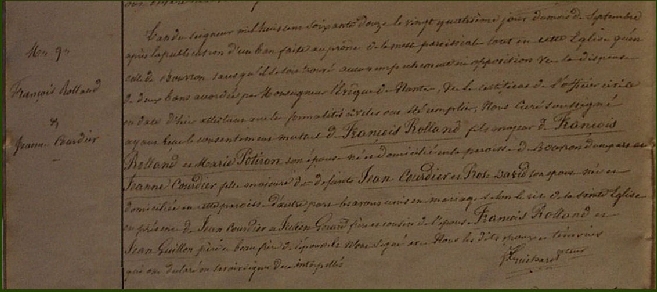 Mar. 97
François Rolland
&
Jeanne Courdier
L'an du seigneur mil huit cent soixante douze le vingt quatrième jour du mois de Septembre
après la publication d'un ban faite au prône de la messe paroissiale tant en cette Eglise qu'en
celle de Bouvron sans qu'il se soit trouvé aucun empêchement ou opposition vu la dispense
de deux bans accordée par Monseigneur l'évêque de Nantes, vu le certificat de l'officier civil
en date d'hier attestant que les formalités civiles ont été remplies; Nous Curé soussigné
ayant reçu le consentement mutuel de François Rolland fils majeur de François
Rolland et Marie Potiron son épouse né et domicilié en la paroisse de Bouvron d'une part et
Jeanne Courdier fille majeure de défunts Jean Courdier et Rose David son épouse née et
domiciliée en cette paroisse d'autre part les avons unis en mariage selon le rit de la sainte Eglise
en présence de Jean Courdier et Julien Gérard frère et cousin de l'épouse François Rolland et
Jean Guillon frère et beau frère de l'époux
tous les dits époux et témoins
ont déclaré ne savoir signer de ce interpellés
Guichard